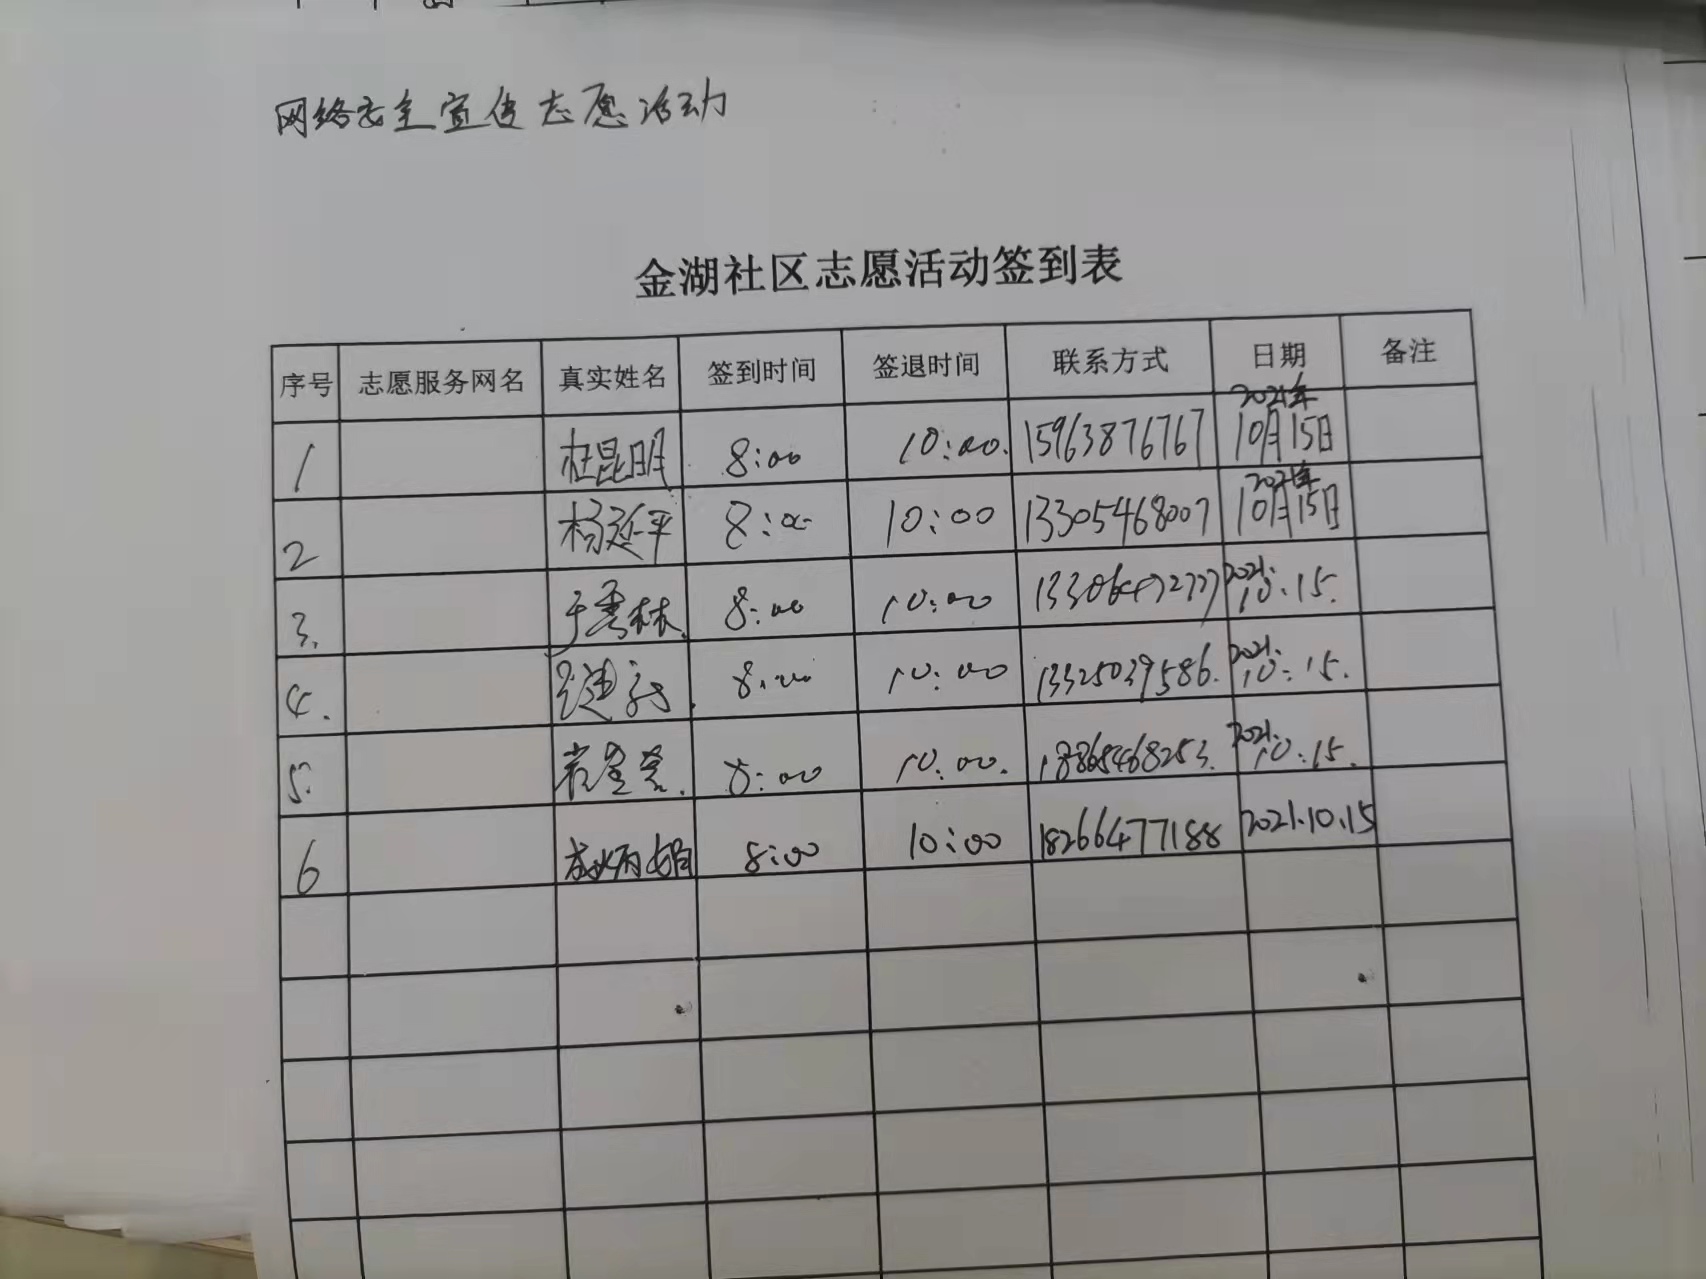 网络安全宣传志愿活动
金湖社区志愿活动签到表
序号 志愿服务网名 真实姓名 签到时间 签退时间 联系方式 日期 备注
1 杜昆明 8:00 10:00. 15963876767 2021年10月15日
2 杨延平 8:00 10:00 13305468007 2021年10月15日
3. 于秀林. 8:00 10:00 2021.10.15.
4. 8:00 10:00 13325039586. 2021.10.15.
5. 8:00 10:00. 18865468253. 2021.10.15.
6 8:00 10:00 18266477188 2021.10.15